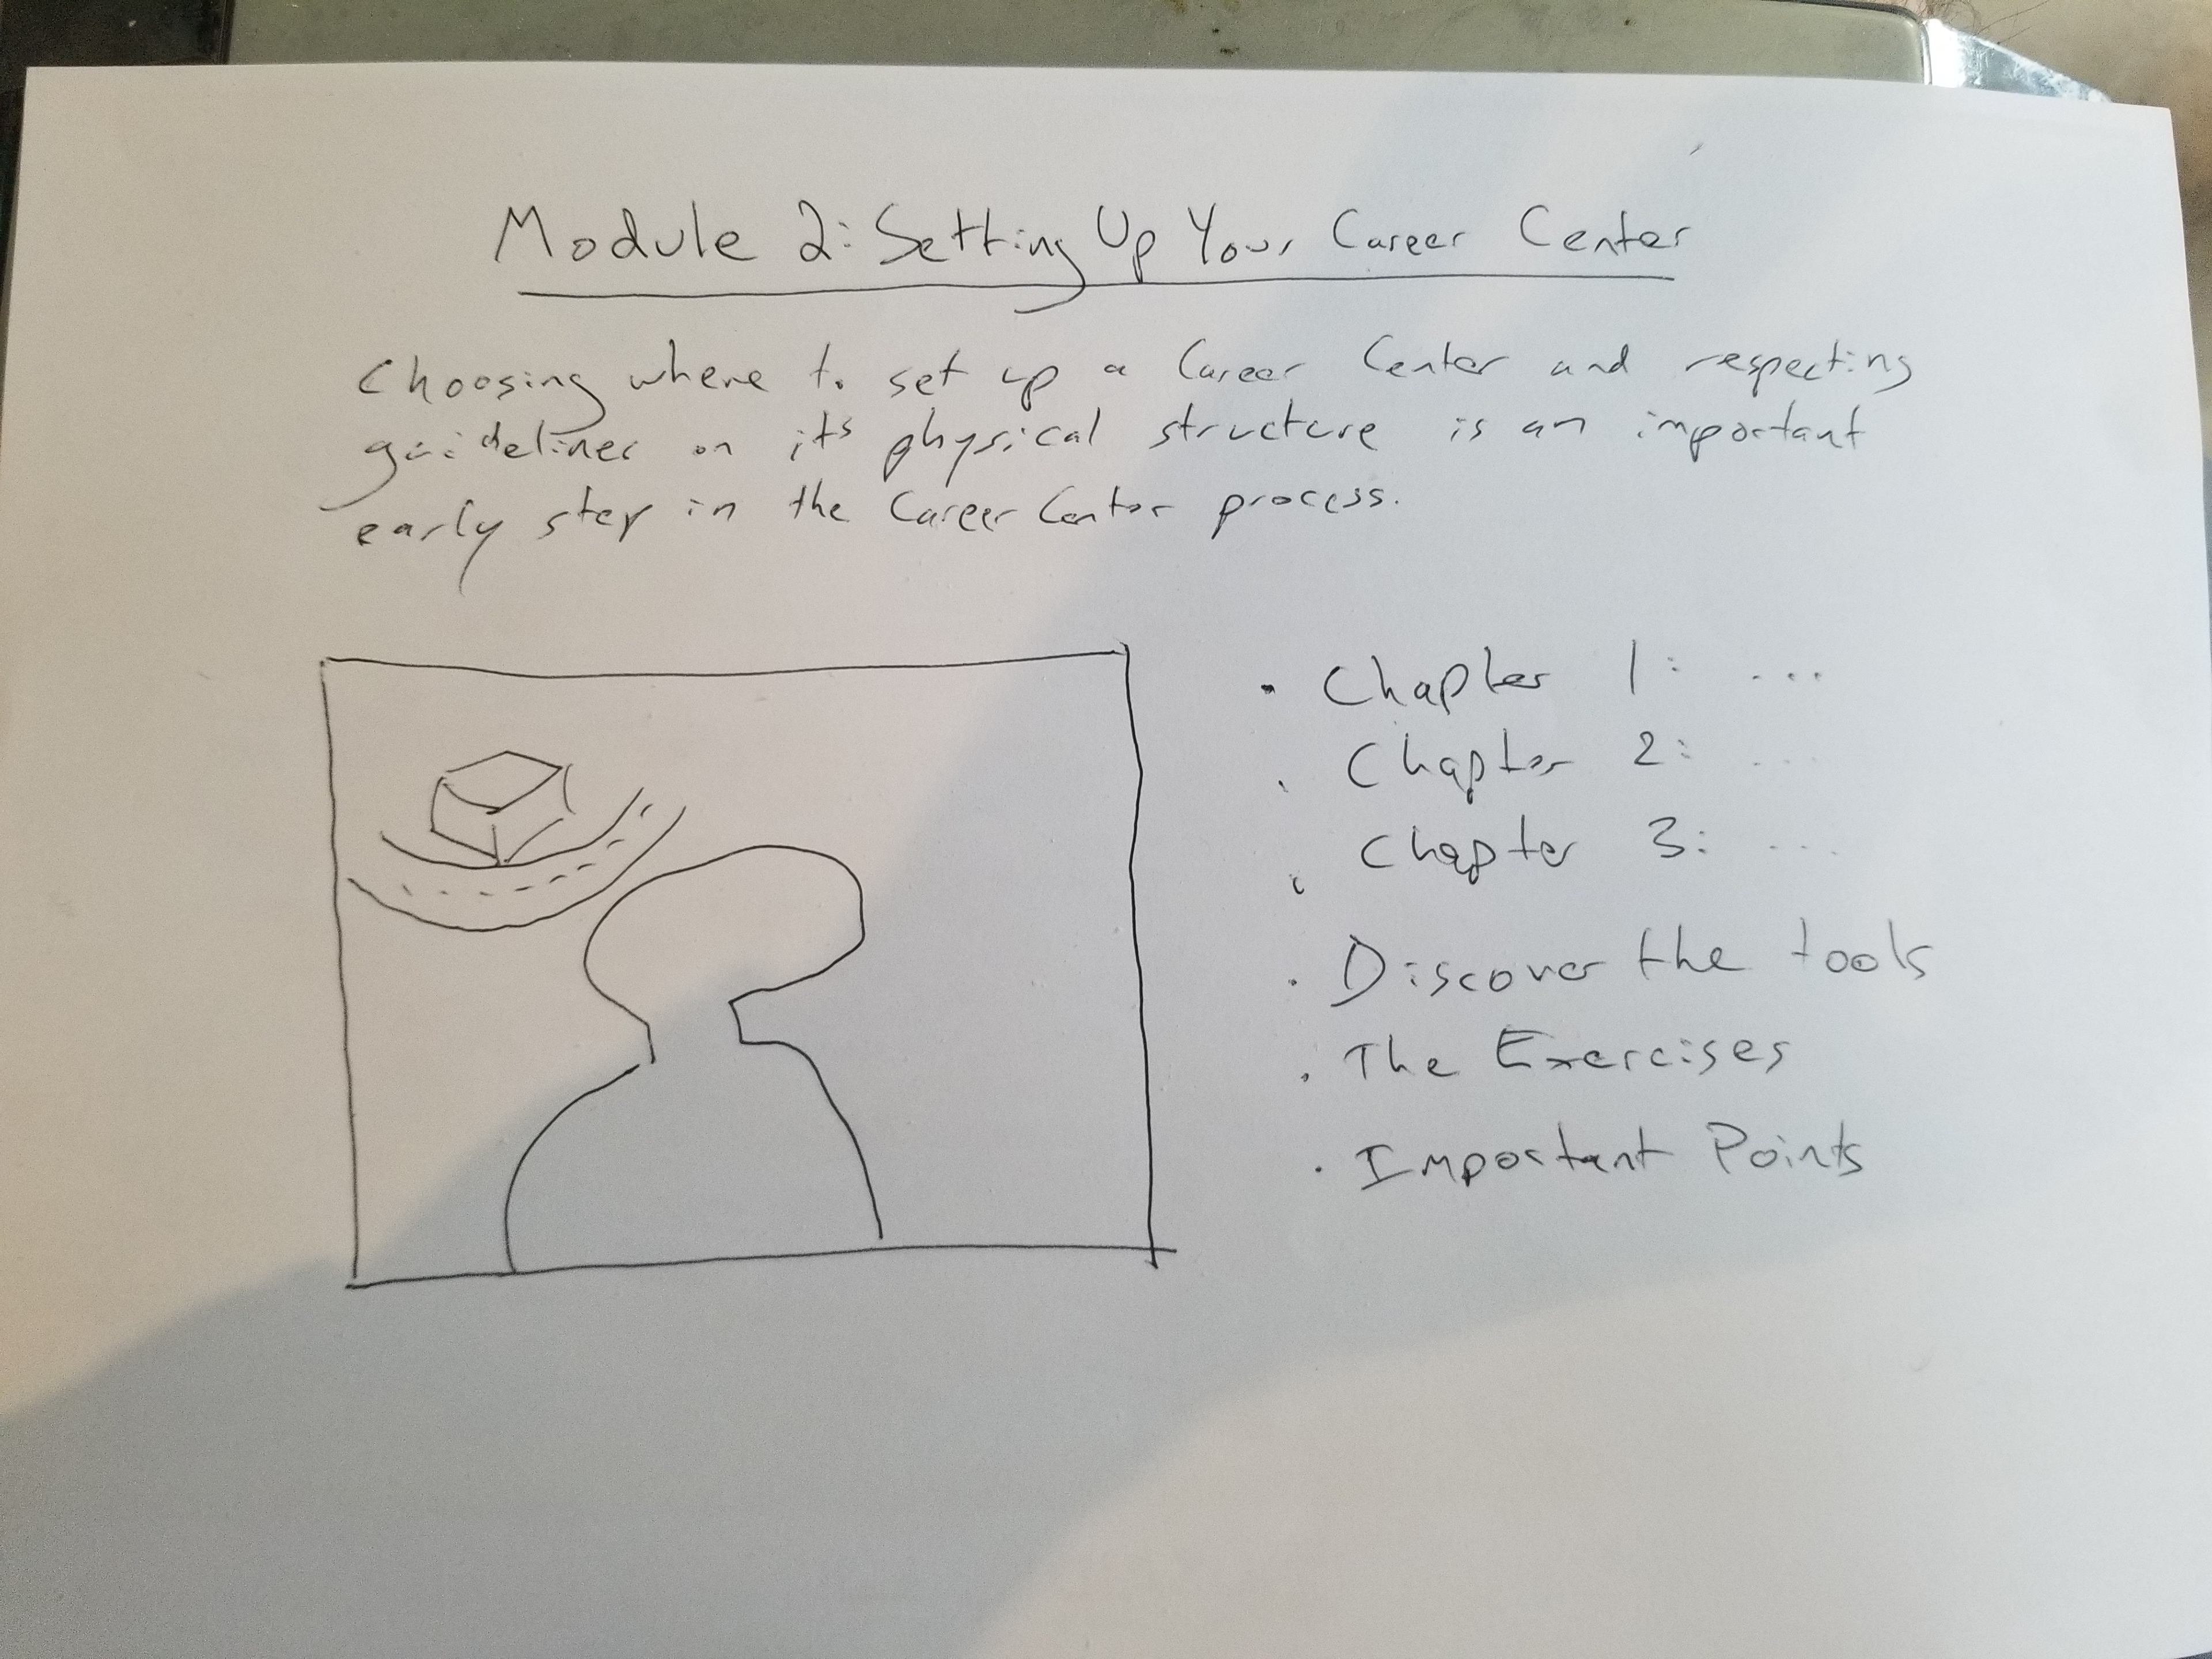 Module 2: Setting Up Your Career Center
Choosing where to set up a Career Center and respecting
guidelines on its physical structure is an important
early step in the Career Center process.
• Chapter 1: ...
• Chapter 2: ...
• Chapter 3: ...
• Discover the tools
• The Exercises
• Important Points